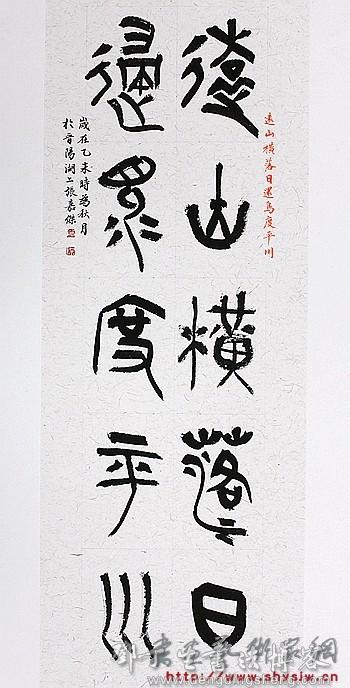 遠山橫落日還鳥度平川
遠山橫落日
還鳥度平川
歲在乙未時為秋月
於晉陽湖上張嘉傑
http://www.shxsjw.cn